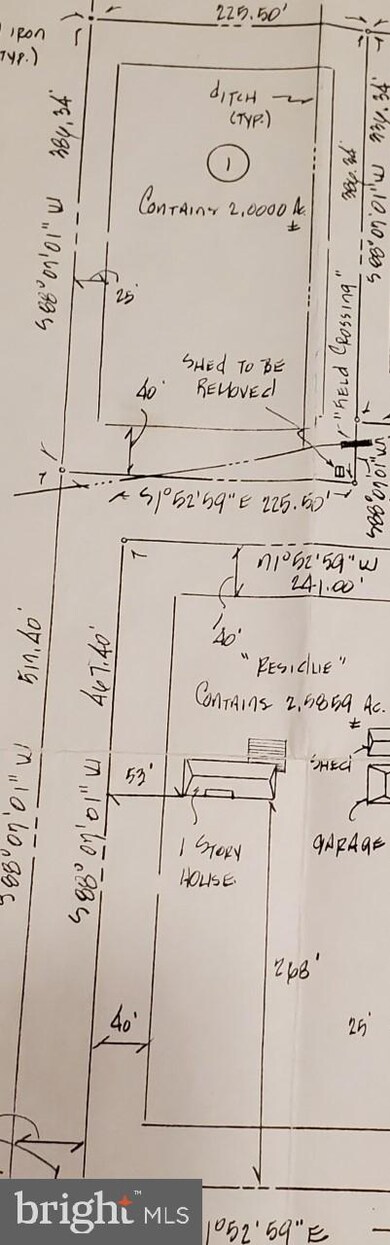 225.50'
IRON
TYP.)
DITCH
(TYP.)
1
CONTAINS 2.0000 AC.
±
S88°07'01"W 386.34'
386.34'
25'
"FIELD CROSSING"
SHED TO BE
REMOVED
40'
S1°52'59"E 225.50'
N1°52'59"W
241.00'
40'
"RESIDUE"
CONTAINS 2.5859 AC.
±
S88°07'01"W 517.40'
S88°07'01"W 467.40'
53'
SHED
1 STORY
HOUSE
GARAGE
268'
40'
25'
1°52'59"E
bright MLS